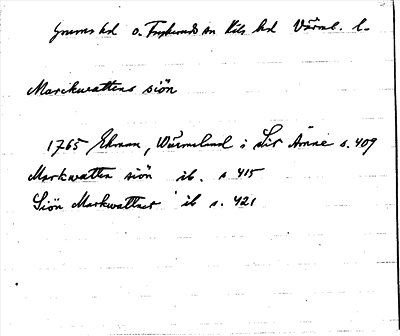 Grums hd o. Frykeruds sn Kils hd Värml. l.
Marckwattens siön
1765 Ekman, Wärmeland i Sit Ämne s. 409
Markwatten siön ib. s 415
Siön Markwattnet ib s. 421